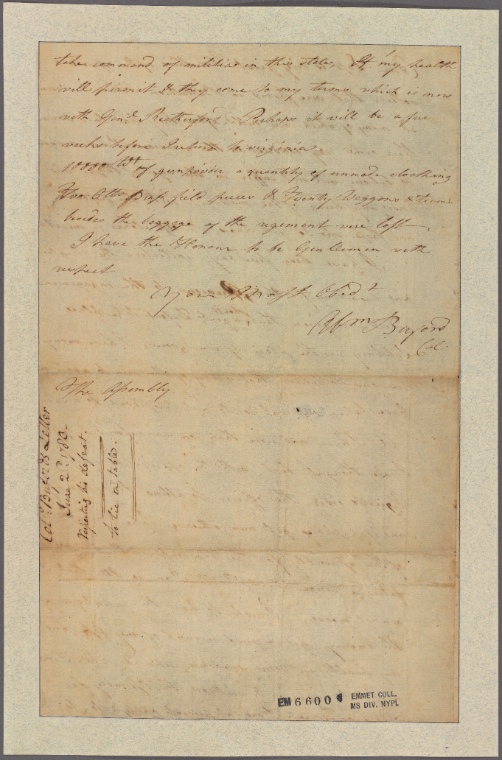 take command of militia in this state, If my health
will permit & they come to my terms which is now
with Genl. Rutherford Perhaps it will be a few
weeks before I return to virginia
of gunpowder a quantity of unmade cloathing
two Brass field pieces & Twenty Waggons & teams
besides the baggage of the regiment were lost
I have the Honour to be Gentlemen with
respect
Your Most Obedt
Abm Buford
Col:
The Assembly
Col: Buford's Letter
June 2d 1780.
respecting his defeat.
to lie on table.
EM 6600
EMMET COLL.
MS DIV. NYPL